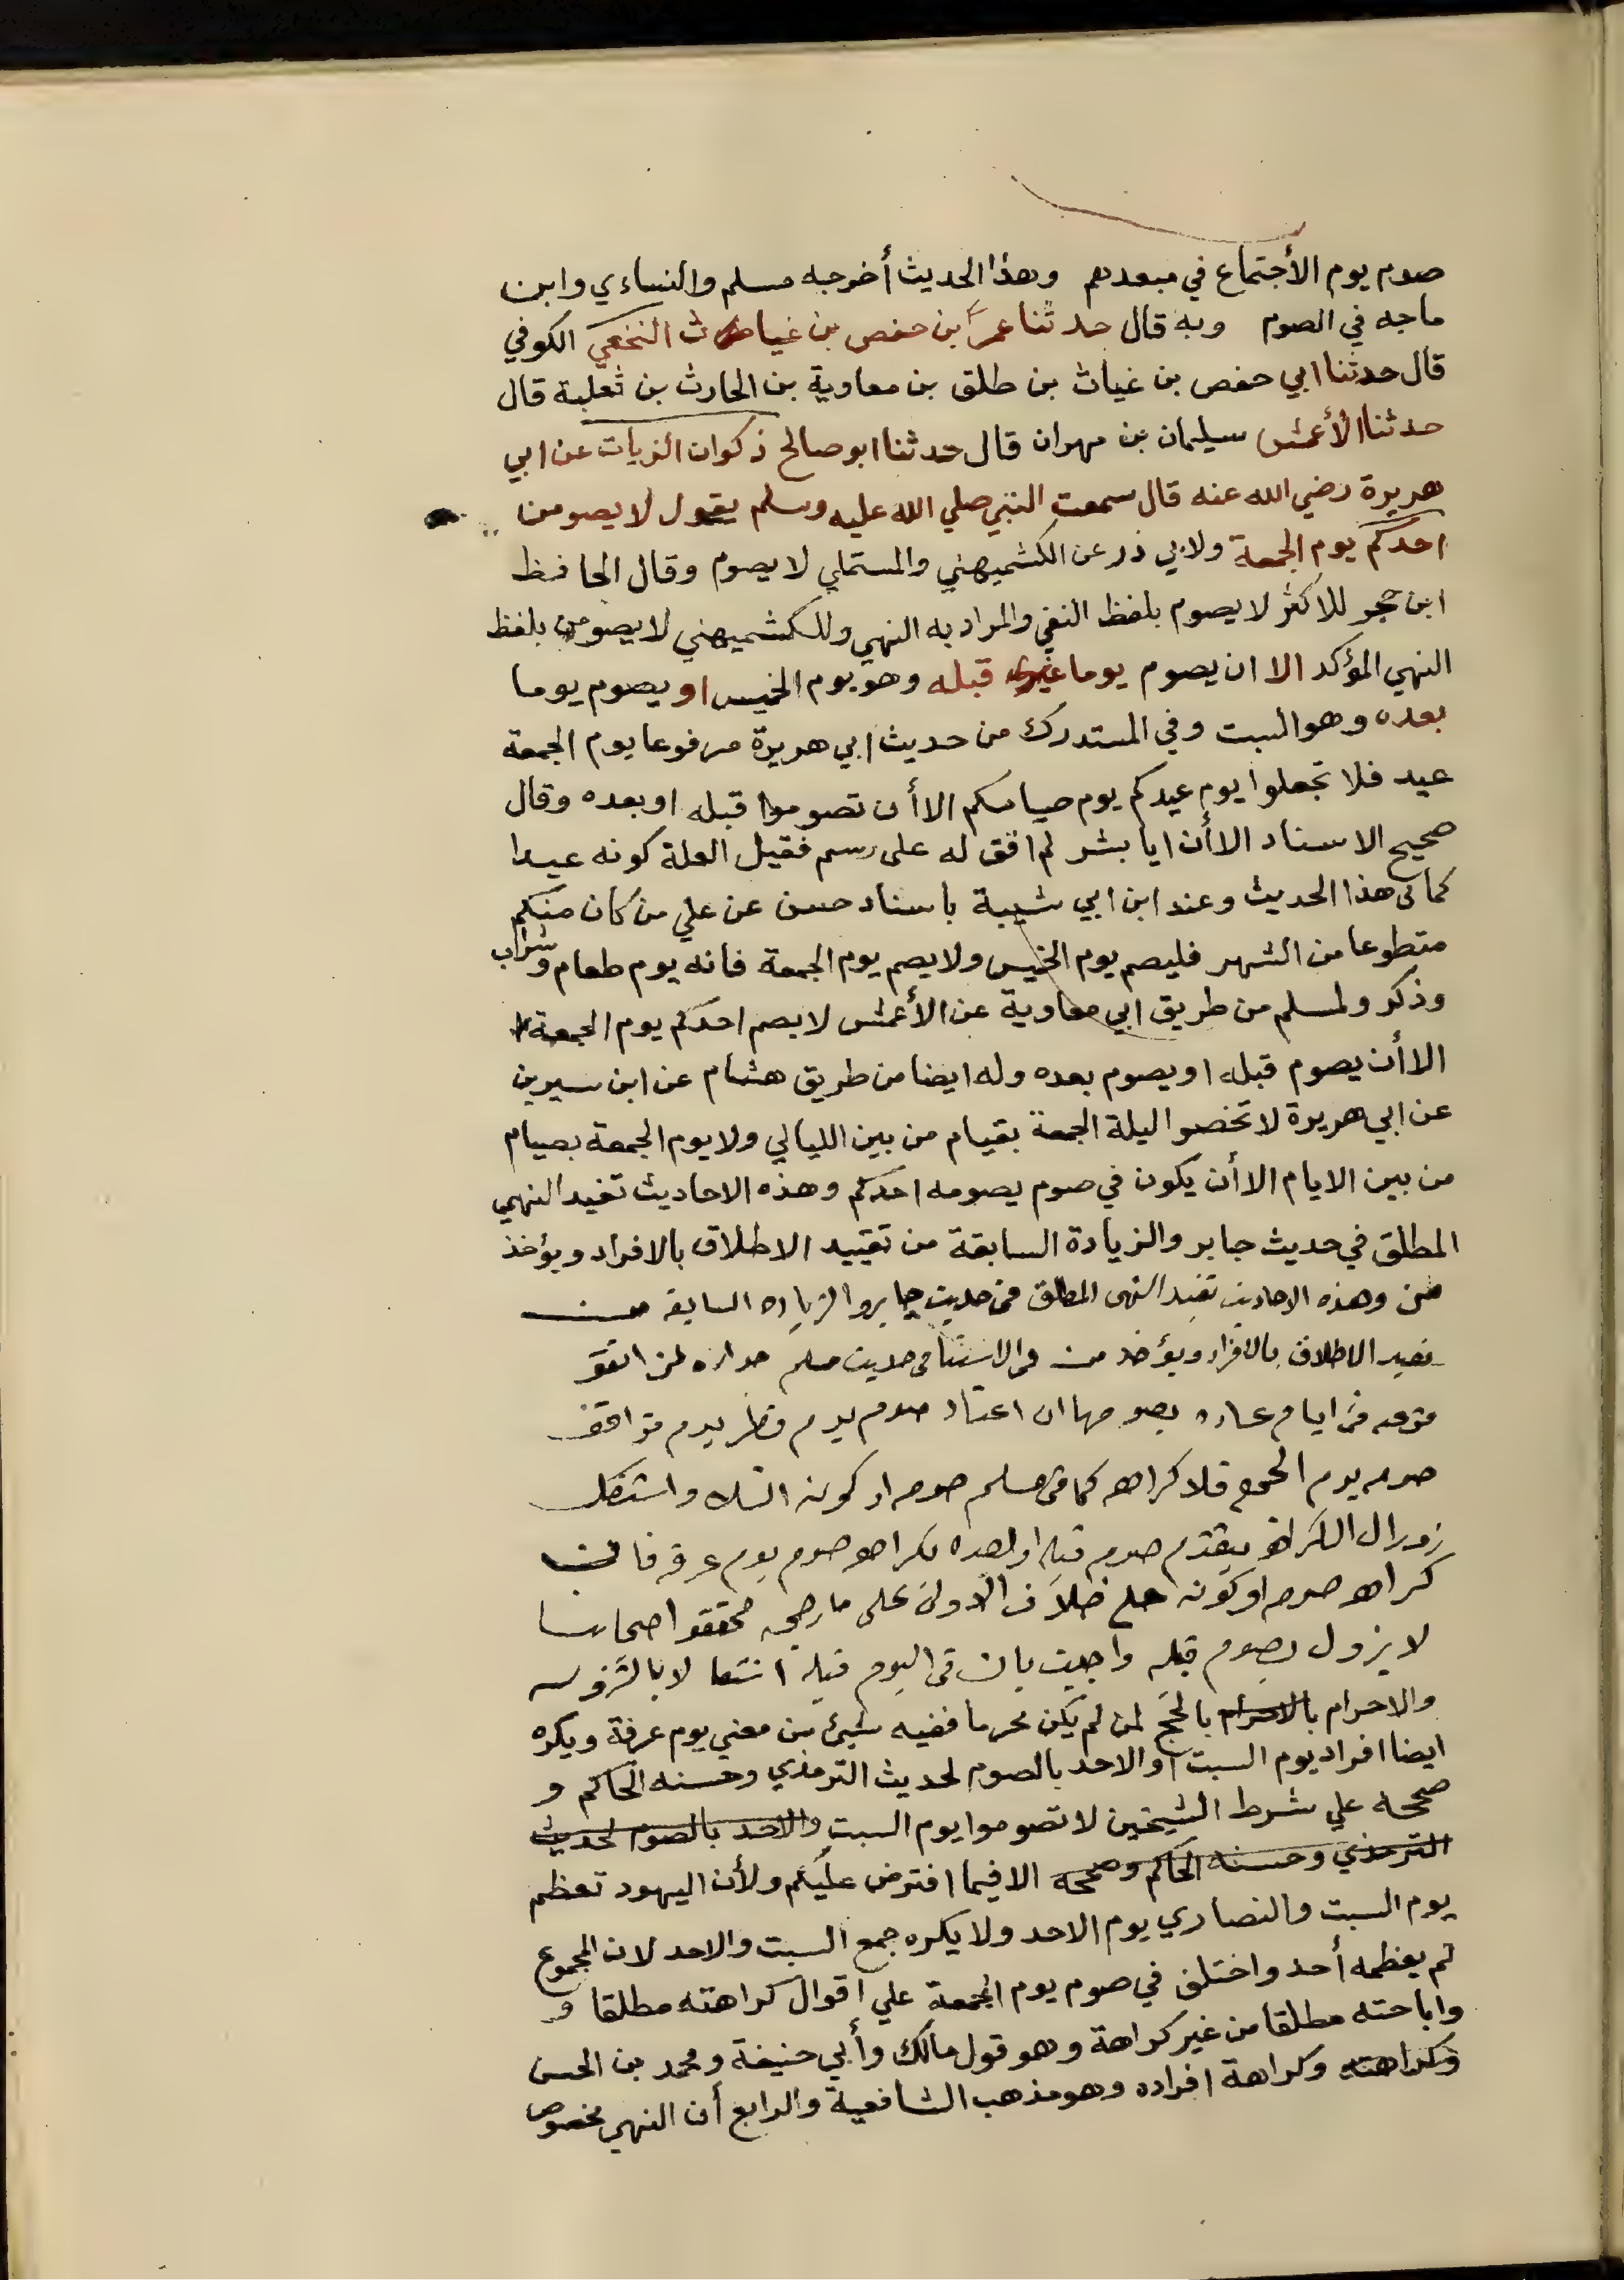 صوم يوم الأجتماع في مبعدهم وهذا الحديث أخرجه مسلم والنساءي وابن
ماجه في الصوم وبه قال حدثنا عمر بن حفص بن غياث النخعي الكوفي
قال حدثنا ابي حفص بن غياث بن طلق بن معاوية بن الحارث بن ثعلبة قال
حدثنا الأعمش سيليمان بن مهران قال حدثنا ابو صالح ذكوان الزيات عن ابي
هريرة رضي الله عنه قال سمعت النبي صلي الله عليه وسلم يقول لا يصومن
احدكم يوم الجمعة ولابي ذر عن الكشميهني والمستملي لا يصوم وقال الحافظ
ابن حجر للاكثر لا يصوم بلفظ النفي والمراد به النهي وللكشميهني لا يصومن بلفظ
النهي المؤكد الا ان يصوم يوما قبله وهو يوم الخميس او يصوم يوما
بعده وهو السبت وفي المستدرك من حديث ابي هريرة مرفوعا يوم الجمعة
عيد فلا تجعلوا يوم عيدكم يوم صيامكم الا أن تصوموا قبله او بعده وقال
صحيح الاسناد الا أن ابا بشر لم اقف له على رسم فقيل العلة كونه عيدا
كما في هذا الحديث وعند ابن ابي شيبة باسناد حسن عن علي من كان منكم
متطوعا من الشهر فليصم يوم الخميس ولا يصم يوم الجمعة فانه يوم طعام وشراب
وذكر ولمسلم من طريق ابي معاوية عن الأعمش لا يصم احدكم يوم الجمعة
الا أن يصوم قبله او يصوم بعده وله ايضا من طريق هشام عن ابن سيرين
عن ابي هريرة لا تخصوا ليلة الجمعة بقيام من بين الليالي ولا يوم الجمعة بصيام
من بين الايام الا أن يكون في صوم يصومه احدكم وهذه الاحاديث تفيد النهي
المطلق في حديث جابر والزيادة السابقة من تقييد الاطلاق بالافراد ويؤخذ
من وهذه الاحاديث تفيد النهي المطلق في حديث جابر والزياده السابقه من
تقييد الاطلاق بالافراد ويؤخذ من الاستثنا في حديث مسلم جوازه لمن اتفق
في ايام عاده يصومها ان اعتاد صوم يوم وفطر يوم فوافق
صومه يوم الجمعه فلا كراهه كما في مسلم صومه او كونه واستشكل
زوال الكراهه بتقدم صوم قبله او بعده بكراهه صوم يوم عرفه فان
كراهه صومه او كونه خلاف الاولى على ما رجحه محققوا اصحابنا
لا يزول بصوم قبله واجيب بان في اليوم قبله اشتغالا بالترويه
والاحرام بالاحرام بالحج لمن لم يكن محرما ففيه شيئ من معني يوم عرفة ويكره
ايضا افراد يوم السبت او الاحد بالصوم لحديث الترمذي وحسنه الحاكم و
صححه علي شرط الشيخين لا تصوموا يوم السبت والاحد بالصوم لحديث
الترمذي وحسنه الحاكم وصححه الا فيما افترض عليكم ولأن اليهود تعظم
يوم السبت والنصاري يوم الاحد ولا يكره جمع السبت والاحد لان المجموع
لم يعظمه أحد واختلف في صوم يوم الجمعة علي اقوال كراهته مطلقا و
واباحته مطلقا من غير كراهة وهو قول مالك وأبي حنيفة ومحمد بن الحسن
وكراهته وكراهة افراده وهو مذهب الشافعية والرابع أن النهي مخصوص